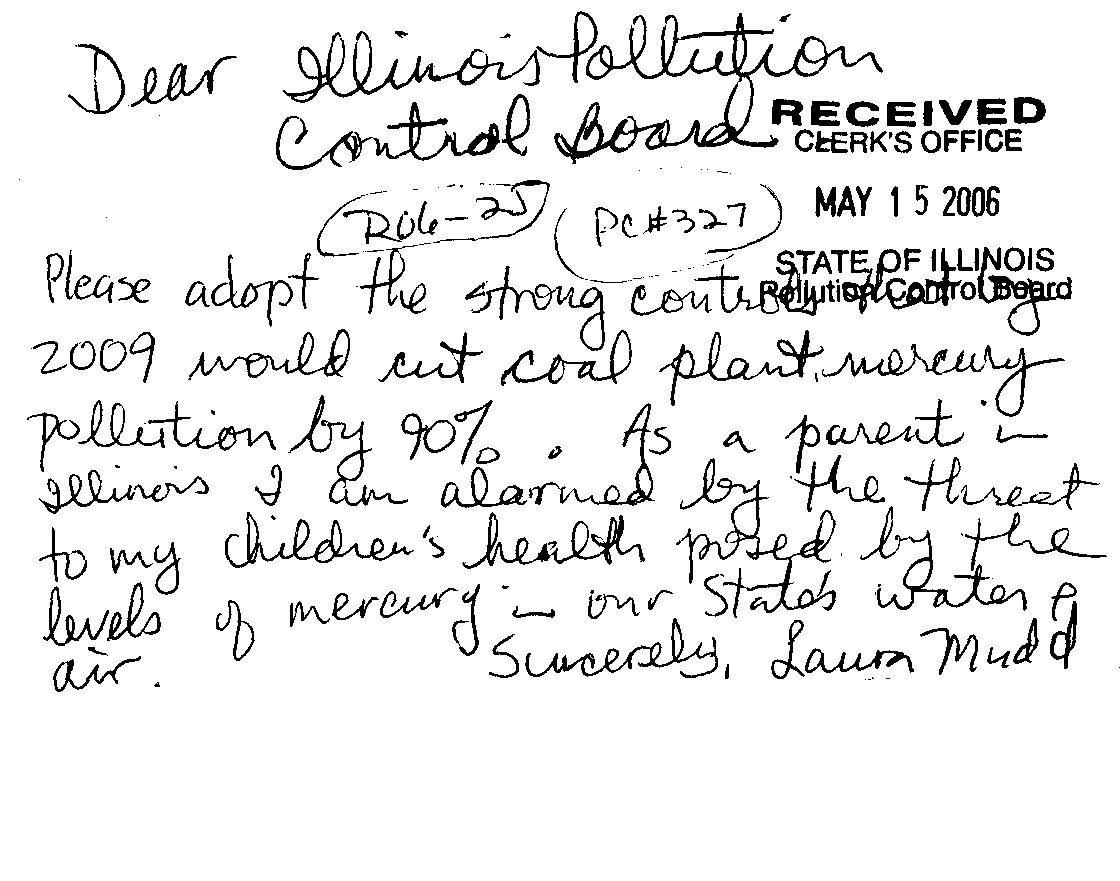 Dear Illinois Pollution
Control Board
RECEIVED
CLERK'S OFFICE
MAY 15 2006
STATE OF ILLINOIS
Pollution Control Board
R06-25
PC#327
Please adopt the strong controls that by
2009 would cut coal plant mercury
pollution by 90%. As a parent in
Illinois I am alarmed by the threat
to my children's health posed by the
levels of mercury in our State's water &
air. Sincerely, Laura Mudd